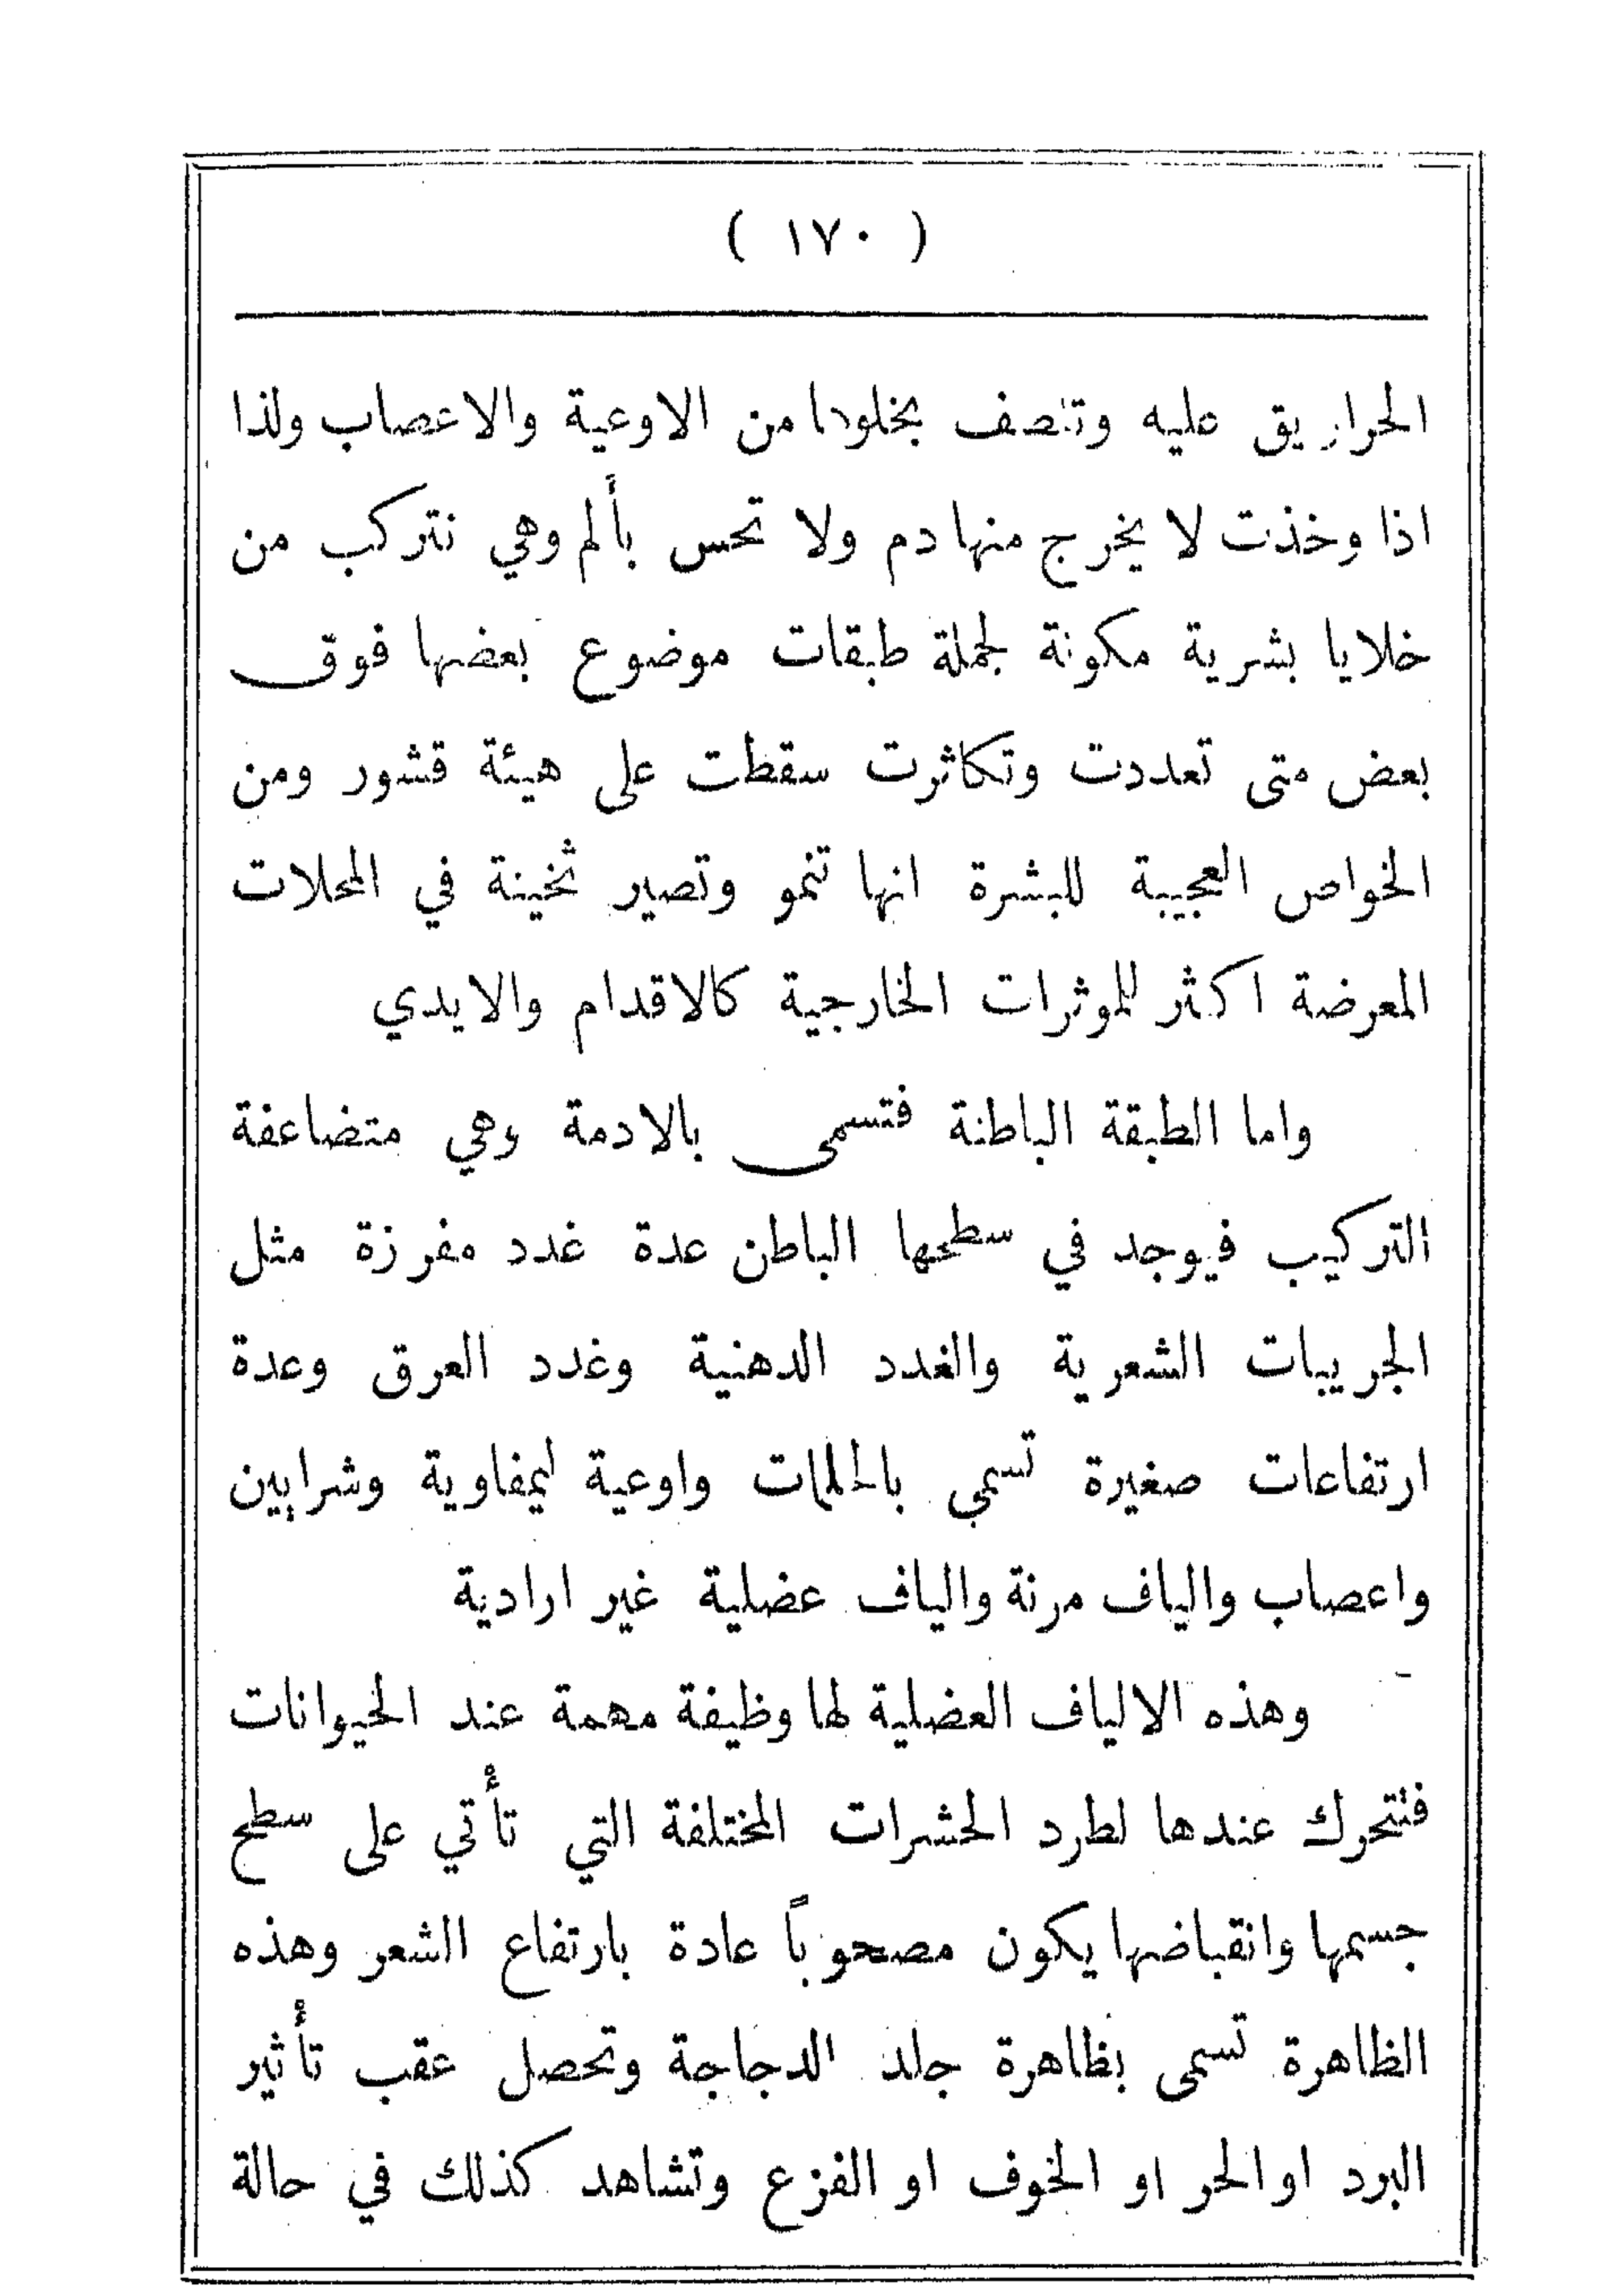 ( ١٧٠ )
الحراريق عليه وتتصف بخلوها من الاوعية والاعصاب ولذا
اذا وخذت لا يخرج منها دم ولا تحس بألم وهي نتركب من
خلايا بشرية مكونة لجملة طبقات موضوع بعضها فوق
بعض متى تعددت وتكاثرت سقطت على هيئة قشور ومن
الخواص العجيبة للبشرة انها تنمو وتصير ثخينة في المحلات
المعرضة اكثر للموثرات الخارجية كالاقدام والايدي
واما الطبقة الباطنة فتسمى بالادمة وهي متضاعفة
التركيب فيوجد في سطحها الباطن عدة غدد مفرزة مثل
الجريبات الشعرية والغدد الدهنية وغدد العرق وعدة
ارتفاعات صغيرة تسمي بالحلمات واوعية ليمفاوية وشرايين
واعصاب والياف مرنة والياف عضلية غير ارادية
وهذه الالياف العضلية لها وظيفة مهمة عند الحيوانات
فنتحرك عندها لطرد الحشرات المختلفة التي تأتي على سطح
جسمها وانقباضها يكون مصحوباً عادة بارتفاع الشعر وهذه
الظاهرة تسمى بظاهرة جلد الدجاجة وتحصل عقب تأثير
البرد او الحر او الخوف او الفزع وتشاهد كذلك في حالة